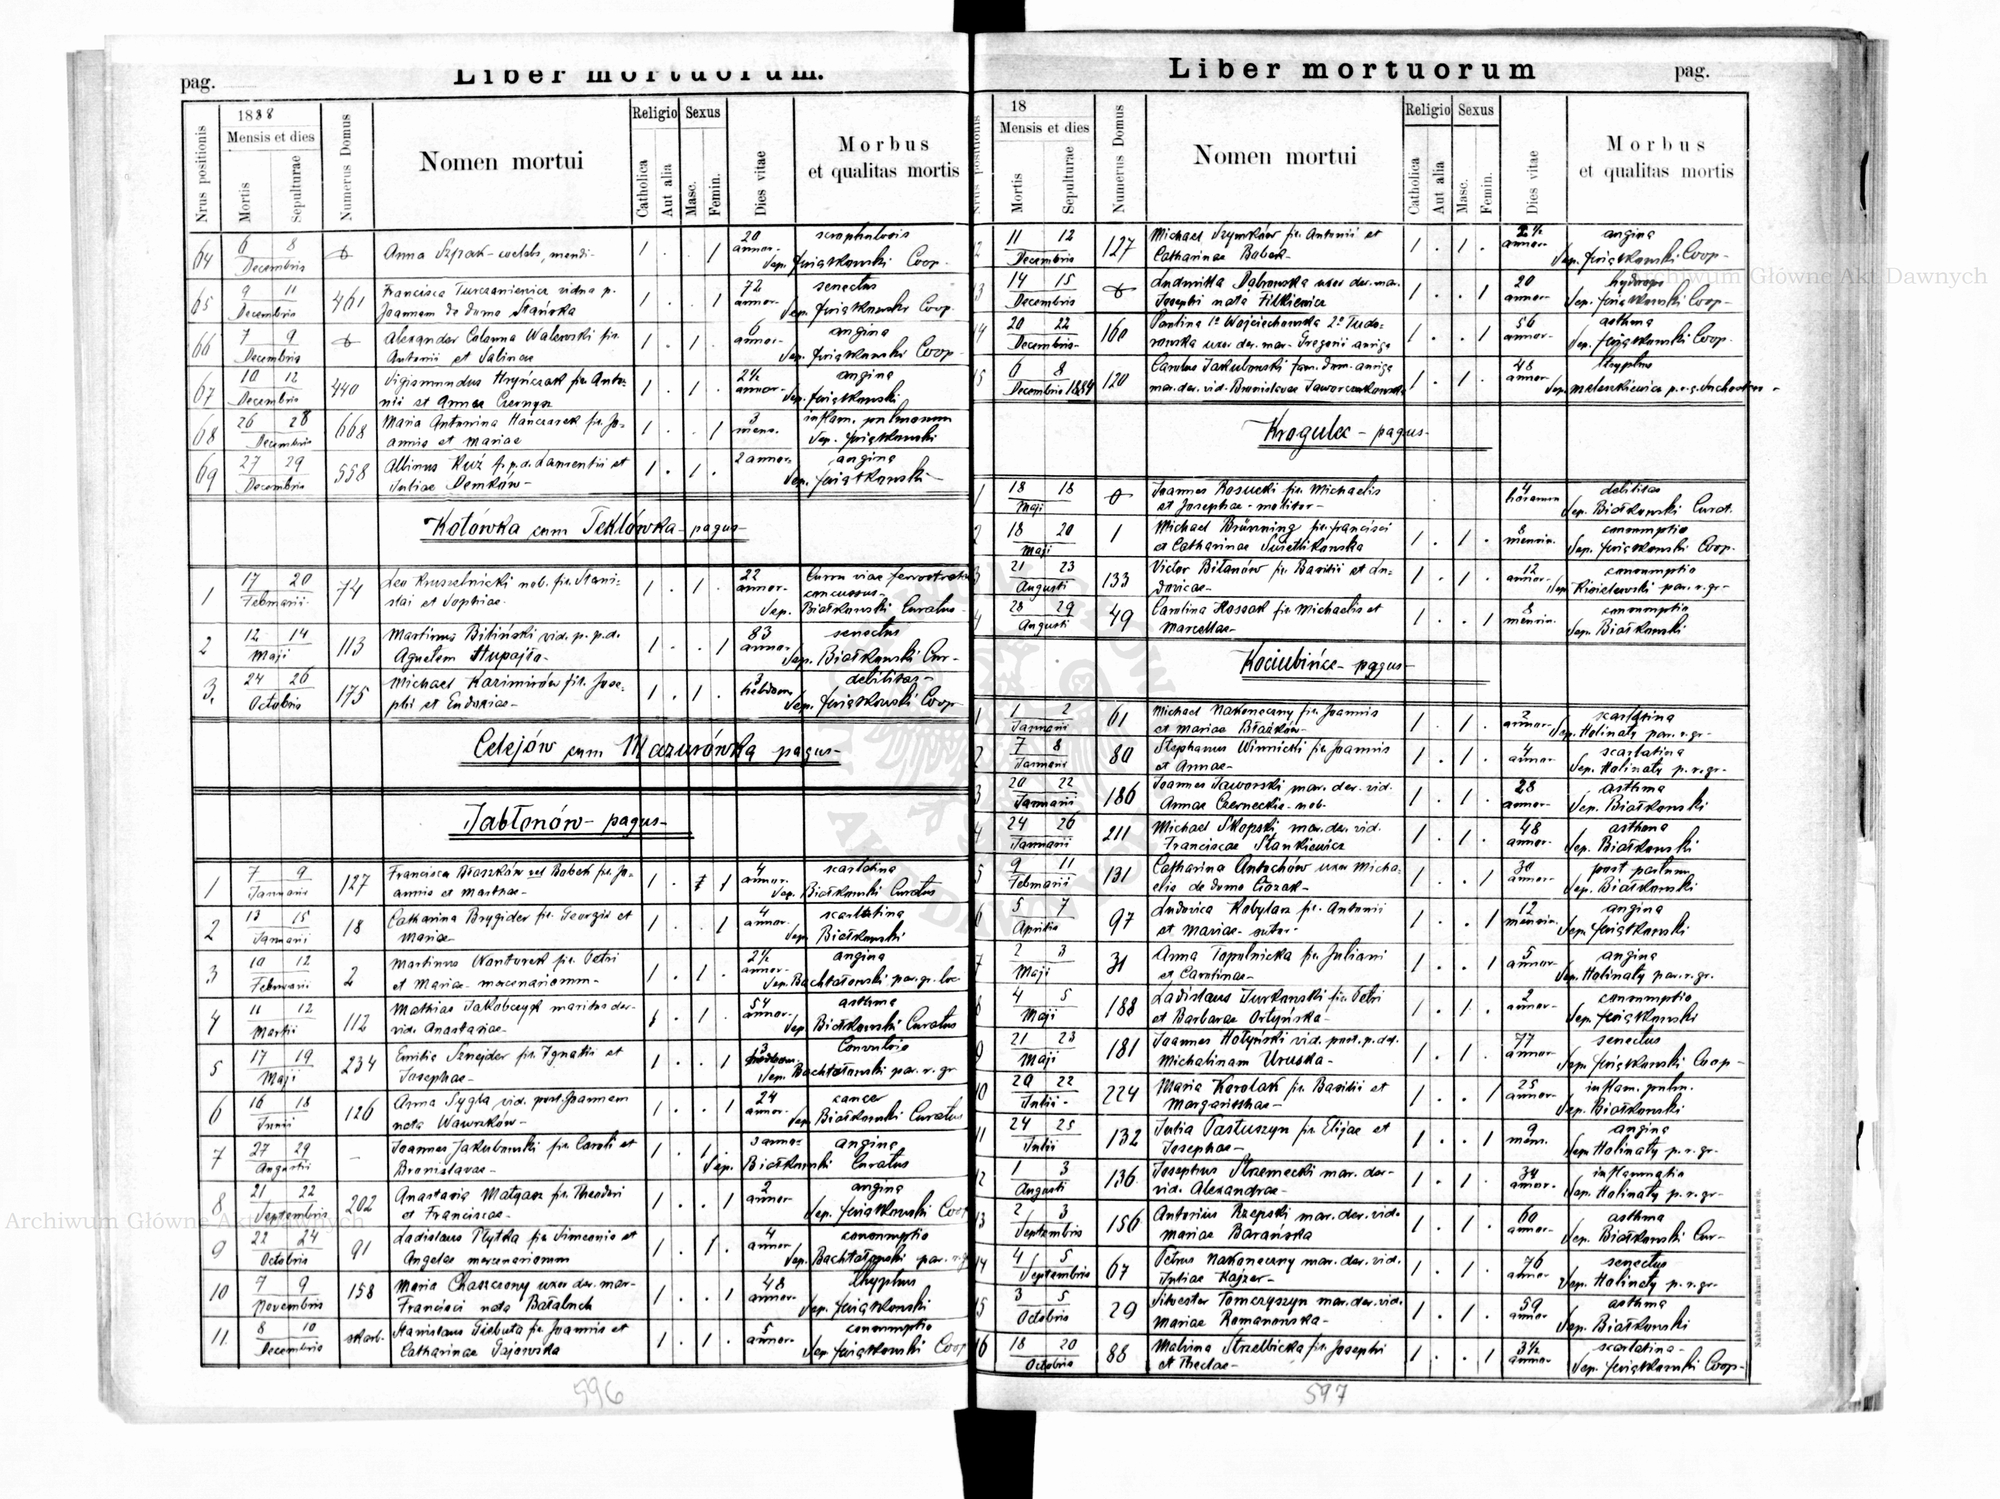 Liber mortuorum.
pag.
1888
Mensis et dies
Religio
Sexus
Nrus positionis
Mortis
Sepulturae
Numerus Domus
Nomen mortui
Catholica
Aut alia
Masc.
Femin.
Dies vitae
Morbus
et qualitas mortis
64 6 8 Decembris
Anna Szpak - coelebs, mendi-
1 . . 1 20 annor.
Sep. Kwiatkowski Coop.
65 9 11 Decembris 461
Francisca Turczaniewicz vidua p.
Joannem de domo Stańska
1 . . 1 72 annor. senectus
Sep. Kwiatkowski Coop.
66 7 9 Decembris
Alexander Colonna Walewski fil.
Antonii et Sabinae
1 . 1 . 6 annor. angina
Sep. Kwiatkowski Coop.
67 10 12 Decembris 440
Sigismundus Hryńczak fil. Anto-
nii et Annae Czernyn
1 . 1 . 2½ annor. angina
Sep. Kwiatkowski
68 26 28 Decembris 668
Maria Antonina Hańczarek fil. Jo-
annis et Mariae
1 . . 1 3 mens. inflam. pulmonum
Sep. Kwiatkowski
69 27 29 Decembris 558
Albinus Kuź f. p. d. Laurentii et
Juliae Demków -
1 . 1 . 2 annor. angina
Sep. Kwiatkowski -
Kotówka cum Teklówka - pagus -
1 17 20 Februarii 74
Leo Kruszelnicki nob. fil. Stani-
slai et Sophiae.
1 . 1 . 22 annor. Curru viae
concussus -
Sep. Białkowski Curatus
2 12 14 Maji 113
Martinus Biliński vid. p. p. d.
Agnetem Hupajło -
1 . . 1 83 annor. senectus
Sep. Białkowski Cur -
3. 24 26 Octobris 175
Michael Kazimirów fil. Jose-
phi et Eudoxiae -
1 . 1 . 3 hebdom. debilitas -
Sep. Kwiatkowski Coop
Celejów cum Mazurówka pagus -
Jabłonów - pagus -
1 7 9 Januarii 127
Francisca Błaszków vel Bobek fil. Jo-
annis et Marthae -
1 . 1 4 annor. scarlatina
Sep. Białkowski Curatus
2 13 15 Januarii 18
Catharina Brygider fil. Georgii et
Mariae -
1 . . 1 4 annor. scarlatina
Sep. Białkowski
3 10 12 Februarii 2
Martinus Wonturek fil. Petri
et Mariae mercenariorum -
1 . 1 . 2½ annor. angina
Sep. Bachtałowski par. gr. loc.
4 11 12 Martii 112
Mathias Jakobczyk maritus der.
vid. Anastasiae -
1 . 1 . 54 annor. asthma
Sep. Białkowski Curatus
5 17 19 Maji 234
Emilia Sznejder fil. Ignatii et
Josephae -
1 . . 1 3 Convulsio
Sep. Bachtałowski par. r. gr
6 16 18 Junii 126
Anna Sygła vid. post. Joannem
nata Wawrków -
1 . . 1 24 annor. cancer
Sep. Białkowski Curatus
7 27 29 Augustii -
Joannes Jakubowski fil. Caroli et
Bronislavae -
1 . 1 . 3 annor. angina
Sep. Białkowski Curatus
8 21 22 Septembris 202
Anastasia Małyasz fil. Theodori
et Franciscae -
1 . . 1 2 annor. angina
Sep. Kwiatkowski Coop
9 22 24 Octobris 91
Ladislaus Płytka fil. Simeonis et
Angelae mercenariorum
1 . 1 . 4 annor. consumptio
Sep. Bachtałowski par. r. gr
10 7 9 Novembris 158
Maria Chaszczony uxor der. mar-
Francisci nata Bałabuch
1 . . 1 48 annor. thyphus
Sep. Kwiatkowski
11. 8 10 Decembris skarb.
Stanislaus Giebuta fil. Joannis et
Catharinae Gajowska
1 . 1 . 5 annor. consumptio
Sep. Kwiatkowski Coop
596
Liber mortuorum
pag.
18
Mensis et dies
Religio
Sexus
Nrus positionis
Mortis
Sepulturae
Numerus Domus
Nomen mortui
Catholica
Aut alia
Masc.
Femin.
Dies vitae
Morbus
et qualitas mortis
12 11 12 Decembris 127
Michael Szymków fil. Antonii et
Catharinae Bobek -
1 . 1 . 2½ annor. angina
Sep. Kwiatkowski Coop -
13 14 15 Decembris
Ludowika Dobrowska uxor der. mar.
Josephi nata Filkiewicz
1 . . 1 20 annor. hydrops
Sep. Kwiatkowski Coop -
14 20 22 Decembris - 160
Paulina 1º Wojciechowska 2º Tudo-
rowska uxor der. mar. Gregorii auriga
1 . . 1 56 annor. asthma
Sep. Kwiatkowski Coop.
15 6 8 Decembris 1889 120
Carolus Jakubowski fam. dom. auriga
mar. der. vid. Bronislavae Jaworczakowska
1 . 1 . 48 annor. thyphus
Sep. Mateszkiewicz
Krogulec - pagus -
1 18 18 Maji
Joannes Rosucki fil. Michaelis
et Josephae - molitor -
4 horarum debilitas
Sep. Białkowski Curat.
2 18 20 Maji 1
Michael Brünning fil. francisci
et Catharinae Swietlikowska
1 . 1 . 8 mensiu. consumptio
Sep. Kwiatkowski Coop.
3 21 23 Augusti 133
Victor Bilanów fil. Basilii et Lu-
dovicae -
1 . 1 . 12 annor. consumptio
Sep. Kisielewski par. r. gr -
4 28 29 Augusti 49
Carolina Kossak fil. Michaelis et
Marcellae -
1 . . 1 8 mensiu. consumptio
Sep. Białkowski
Kociubińce - pagus -
1 1 2 Januarii 61
Michael Nakoneczny fil. Joannis
et Mariae Błażków -
1 . 1 . 2 annor. scarlatina
Sep. Holinaty par. r. gr -
2 7 8 Januarii 80
Stephanus Winnicki fil. Joannis
et Annae -
1 . 1 . 4 annor. scarlatina
Sep. Holinaty p. r. gr -
3 20 22 Januarii 186
Joannes Jaworski mar. der. vid.
Annae Czerneckie - nob.
1 . 1 . 28 annor. asthma
Sep. Białkowski
4 24 26 Januarii 211
Michael Skopski mar. der. vid.
Franciscae Stankiewicz
1 . 1 . 48 annor. asthma
Sep. Białkowski
5 9 11 Februarii 131
Catharina Antochów uxor Micha-
elis de domo Cozak -
1 . . 1 30 annor. post partum
Sep. Białkowski
6 5 7 Aprilis 97
Ludovica Kobylas fil. Antonii
et Mariae - sutor -
1 . . 1 12 mensiu. angina
Sep. Kwiatkowski
7 2 3 Maji 31
Anna Topolnicka fil. Juliani
et Carolinae -
1 . . 1 5 annor. angina
Sep. Holinaty par. r. gr.
8 4 5 Maji 188
Ladislaus Turkowski fil. Petri
et Barbarae Ortyńska -
1 . 1 . 2 annor. consumptio
Sep. Kwiatkowski
9 21 23 Maji 181
Joannes Hołyński vid. post. p. def.
Michalinam Uruska -
1 . 1 . 77 annor. senectus
Sep. Kwiatkowski Coop -
10 20 22 Julii - 224
Maria Karolak fil. Basilii et
Margarithae -
1 . . 1 25 annor. inflam. pulm.
Sep. Białkowski
11 24 25 Julii 132
Julia Pastuszyn fil. Elijae et
Josephae -
1 . . 1 9 mens. angina
Sep. Holinaty p. r. gr.
12 1 3 Augusti 136
Josephus Strzemecki mar. der-
vid. Alexandrae -
1 . 1 . 34 annor. inflammatio
Sep. Holinaty p. r. gr -
13 2 3 Septembris 156
Antonius Rzepski mar. der. vid.
Mariae Barańska
1 . 1 . 60 annor. asthma
Sep. Białkowski Cur -
14 4 5 Septembris 67
Petrus Nakoneczny mar. der. vid.
Juliae Kajzer -
1 . 1 . 76 annor. senectus
Sep. Holinaty p. r. gr.
15 3 5 Octobris 29
Silvester Tomczyszyn mar. der. vid.
Mariae Romanowska -
1 . 1 . 59 annor. asthma
Sep. Białkowski
16 18 20 Octobris 88
Malvina Strzelbicka fil. Josephi
et Theclae -
1 . . 1 3½ annor. scarlatina -
Sep. Kwiatkowski Coop -
597
Nakładem drukarni Ludowej we Lwowie.
Archiwum Główne Akt Dawnych
Archiwum Główne Akt Dawnych